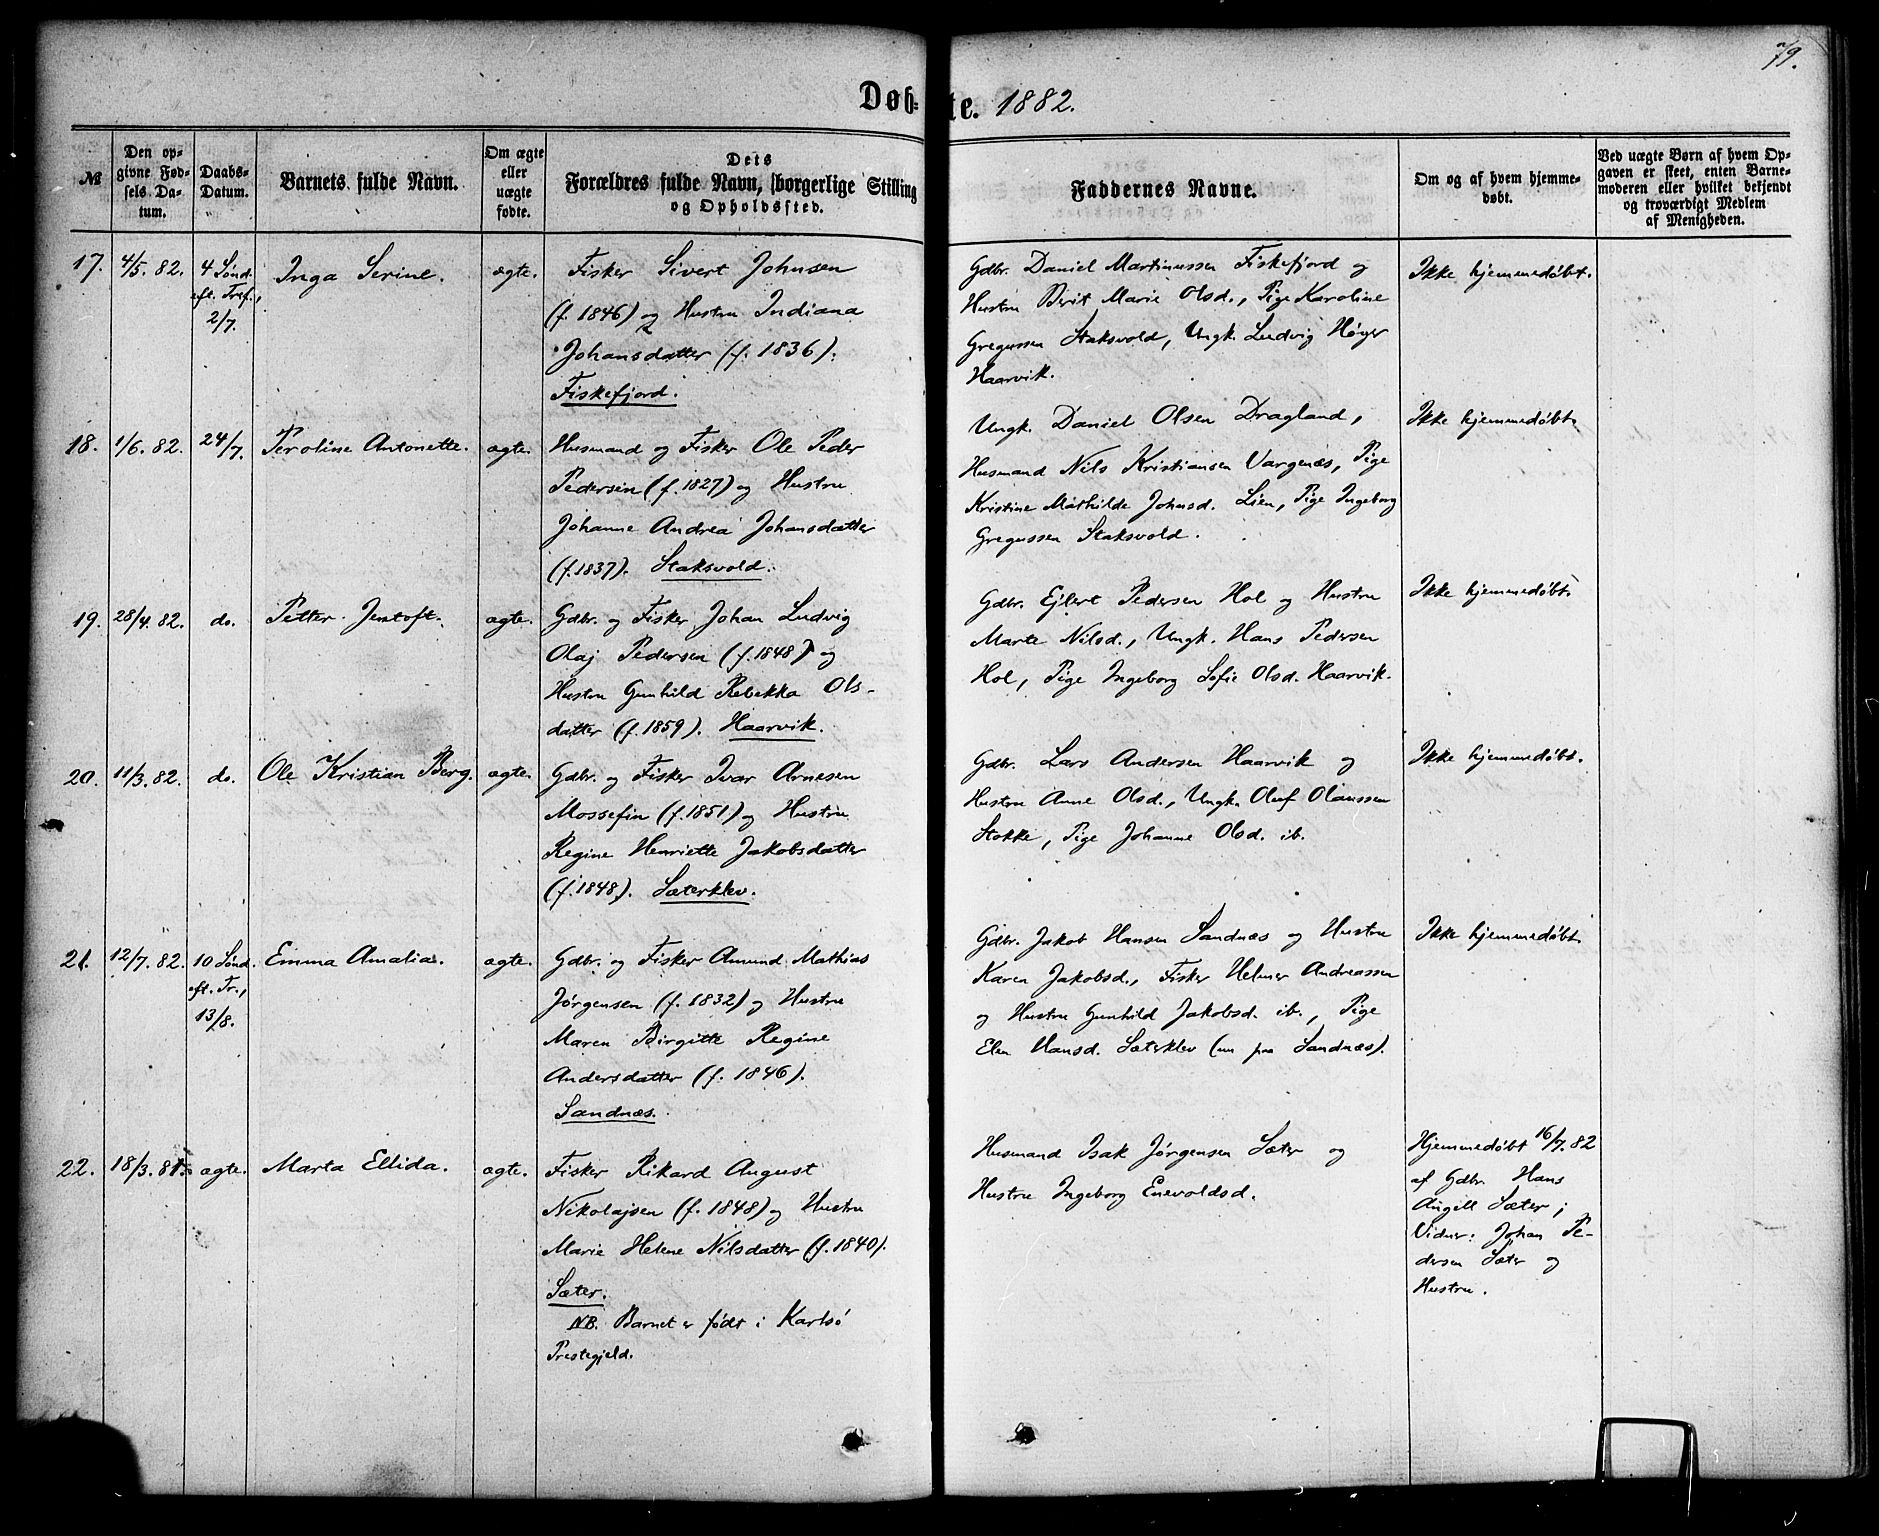 79.
Døbte. 1882.
№
Den opgivne Fødsels Datum.
Daabs-Datum.
Barnets fulde Navn.
Om ægte eller uægte fødte.
Dets Forældres fulde Navn, borgerlige Stilling og Opholdssted.
Faddernes Navne.
Om og af hvem hjemmedøbt.
Ved uægte Børn af hvem Opgaven er skeet, enten Barnemoderen eller hvilket bekjendt og troværdigt Medlem af Menigheden.
17. 4/5. 82. 4 Sønd. eft. Tref., 2/7. Inga Serine. ægte.
Fisker Sivert Johnsen
(f. 1846) og Hustru Indiana
Johansdatter (f. 1836).
Fiskefjord.
Gdbr. Daniel Martinussen Fiskefjord og
Hustru Berit Marie Olsd., Pige Karoline
Gregussen Staksvold, Ungk. Ludvig Høyer
Haarvik.
Ikke hjemmedøbt.
18. 1/6. 82. 24/7. Peroline Antonette. ægte.
Husmand og Fisker Ole Peder
Pedersen (f. 1827) og Hustru
Johanne Andrea Johansdatter
(f. 1837). Staksvold.
Ungk. Daniel Olsen Dragland,
Husmand Nils Kristiansen Vargenæs, Pige
Kristine Mathilde Johnsd. Lien, Pige Ingeborg
Gregussen Staksvold.
Ikke hjemmedøbt.
19. 28/4. 82. do. Petter Jentoft. ægte.
Gdbr. og Fisker Johan Ludvig
Olaj Pedersen (f. 1848) og
Hustru Gunhild Rebekka Ols-
datter (f. 1859). Haarvik.
Gdbr. Ejlert Pedersen Hol og Hustru
Marte Nilsd., Ungk. Hans Pedersen
Hol, Pige Ingeborg Sofie Olsd. Haarvik.
Ikke hjemmedøbt.
20. 11/3. 82. do. Ole Kristian Berg. ægte.
Gdbr. og Fisker Ivar Arnesen
Mossefin (f. 1851) og Hustru
Regine Henriette Jakobsdatter
(f. 1848). Sæterklev.
Gdbr. Lars Andersen Haarvik og
Hustru Anne Olsd., Ungk. Oluf Olaussen
Stokke, Pige Johanne Olsd. ib.
Ikke hjemmedøbt.
21. 12/7. 82. 10 Sønd. eft. Tr., 13/8. Emma Amalia. ægte.
Gdbr. og Fisker Amund Mathias
Jørgensen (f. 1832) og Hustru
Maren Birgitte Regine
Andersdatter (f. 1846).
Sandnæs.
Gdbr. Jakob Hansen Sandnæs og Hustru
Karen Jakobsd., Fisker Helmer Andreassen
og Hustru Gunhild Jakobsd. ib., Pige
Elen Hansd. Sæterklev (nu paa Sandnæs).
Ikke hjemmedøbt.
22. 18/3. 81. ægte. Marta Ellida. ægte.
Fisker Rikard August
Nikolajsen (f. 1848) og Hustru
Marie Helene Nilsdatter (f. 1840).
Sæter.
NB. Barnet er født i Karlsø
Prestegjeld.
Husmand Isak Jørgensen Sæter og
Hustru Ingeborg Enevoldsd.
Hjemmedøbt 16/7. 82
af Gdbr. Hans
Angell Sæter;
Vidner: Johan Pe-
dersen Sæter og
Hustru.